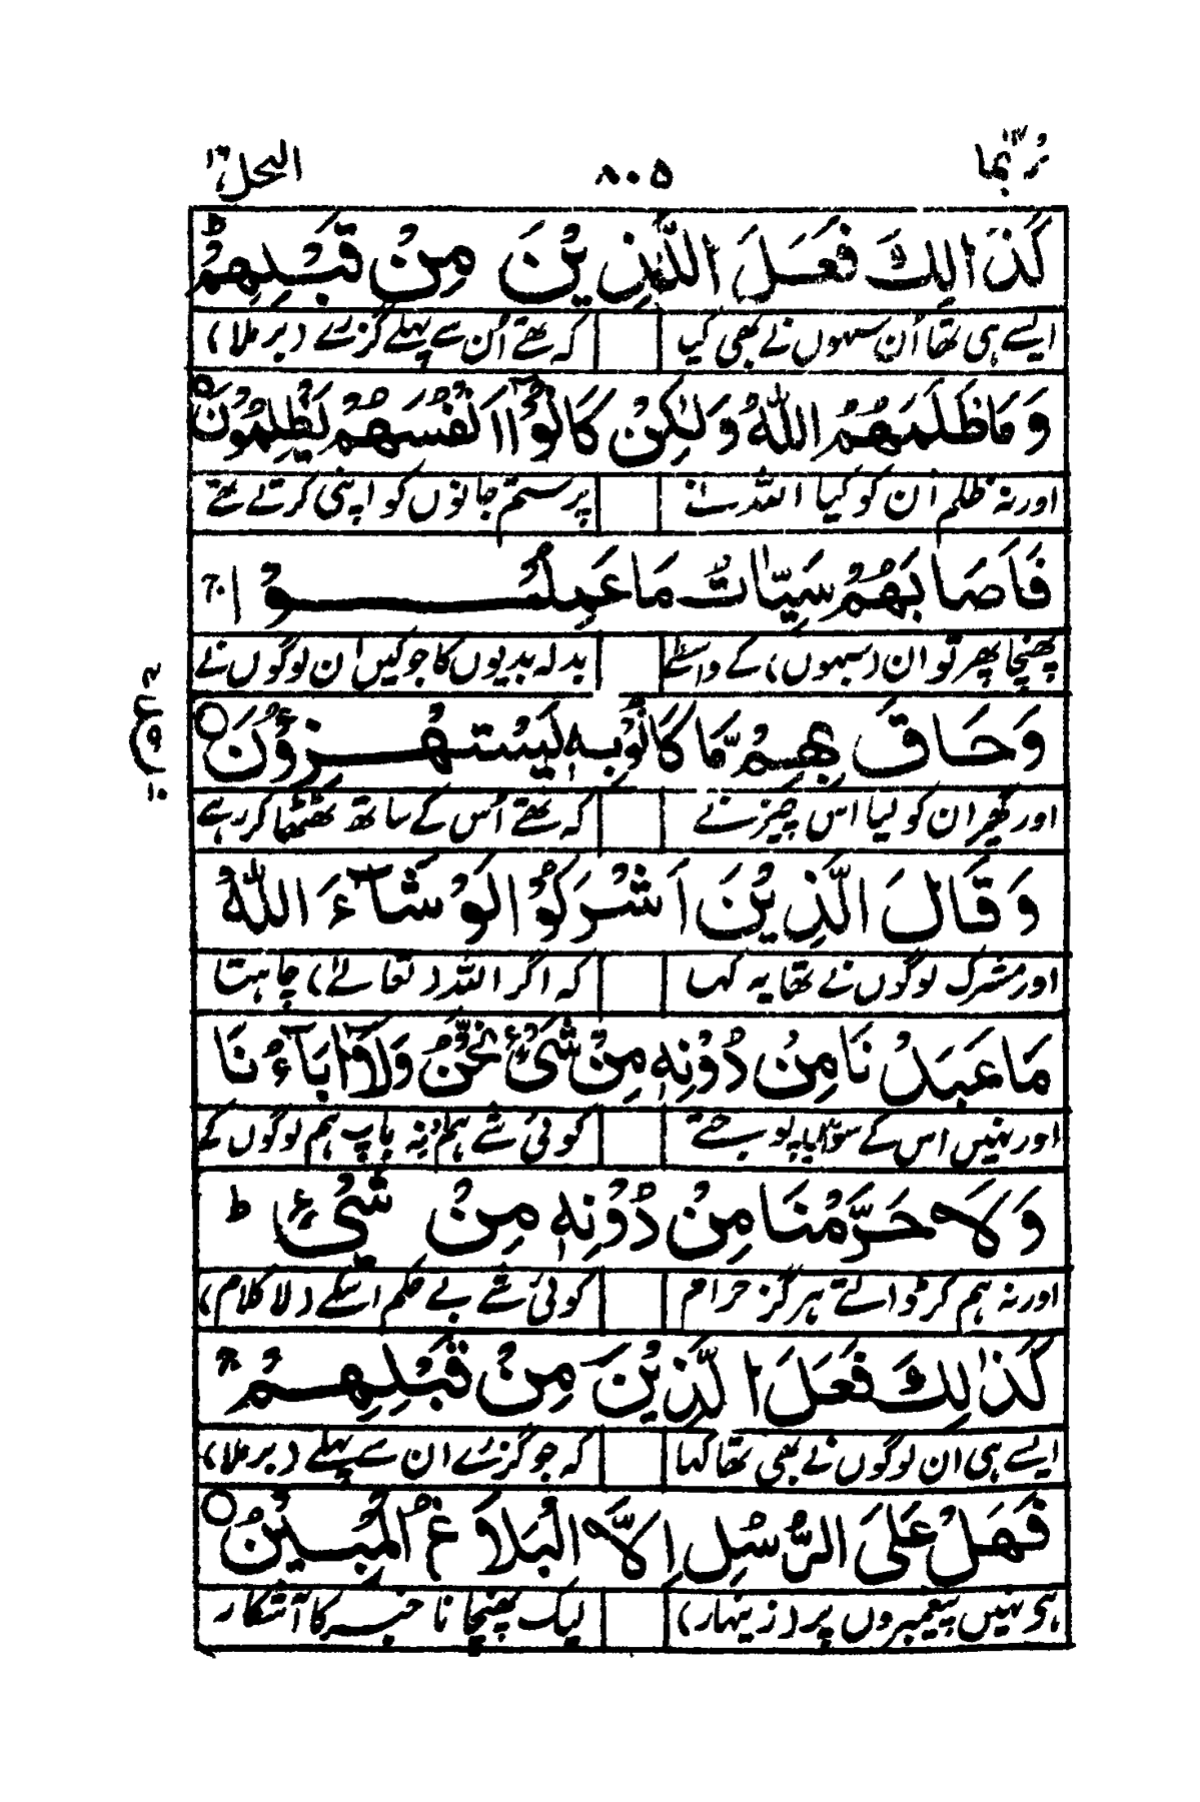 ربما ۱۴ ۸۰۵ النحل ۱۶
كَذَالِكَ فَعَلَ الَّذِيْنَ مِنْ قَبْلِهِمْ ط
ایسے ہی تھا اُن سبھوں نے بھی کیا کہ تھے اُن سے پہلے گزرے (بر ملا)
وَمَا ظَلَمَهُمُ اللّٰهُ وَلٰكِنْ كَانُوْٓا اَنْفُسَهُمْ يَظْلِمُوْنَ ○
اور نہ ظلم ان کو کیا اللہ نے پر ستم جانوں کو اپنی کرتے تھے
فَاَصَابَهُمْ سَيِّاٰتُ مَا عَمِلُوْا
پھنچا پھر تو ان (سبھوں) کے واسطے بدلہ بدیوں کا جو کیں ان لوگوں نے
وَحَاقَ بِهِمْ مَّا كَانُوْا بِهٖ يَسْتَهْزِءُوْنَ ○
اور گھیر ان کو لیا اس چیز نے کہ تھے اُس کے ساتھ ٹھٹھا کر رہے
وَقَالَ الَّذِيْنَ اَشْرَكُوْا لَوْ شَآءَ اللّٰهُ
اور مشرک لوگوں نے تھا یہ کہا کہ اگر اللہ (تعالےٰ) چاہتا
مَا عَبَدْنَا مِنْ دُوْنِهٖ مِنْ شَىْءٍ نَّحْنُ وَلَآ اٰبَآءُنَا
اور نہیں اس کے سوا یا پوجتے کوئی شے ہم نہ باپ ہم لوگوں کے
وَلَا حَرَّمْنَا مِنْ دُوْنِهٖ مِنْ شَىْءٍ ط
اور نہ ہم کر ڈالتے ہرگز حرام کوئی شے بے حکم اسکے (لا کلام)
كَذٰلِكَ فَعَلَ الَّذِيْنَ مِنْ قَبْلِهِمْ
ایسے ہی ان لوگوں نے بھی تھا کہا کہ جو گزرے ان سے پہلے (بر ملا)
فَهَلْ عَلَى الرُّسُلِ اِلَّا الْبَلَاغُ الْمُبِيْنُ ○
ہی نہیں پیغمبروں پر (زینہار) لیک پھنچانا خبر کا آشکار